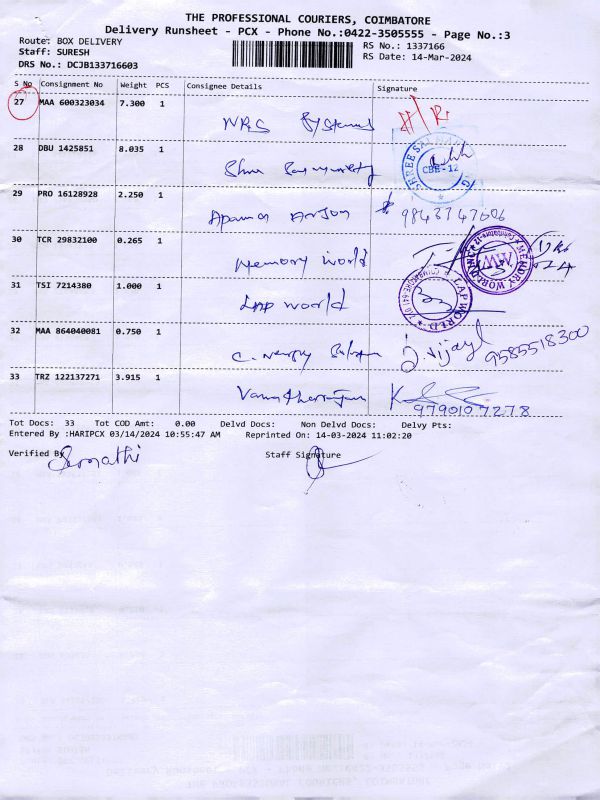 THE PROFESSIONAL COURIERS, COIMBATORE
Delivery Runsheet - PCX - Phone No.:0422-3505555 - Page No.:3
Route: BOX DELIVERY
RS No.: 1337166
Staff: SURESH
RS Date: 14-Mar-2024
DRS No.: DCJB133716603
S No Consignment No Weight PCS Consignee Details Signature
27 MAA 600323034 7.300 1
NRS Systems
28 DBU 1425851 8.035 1
CBE-12
29 PRO 16128928 2.250 1
9843747606
30 TCR 29832100 0.265 1
Memory World
31 TSI 7214380 1.000 1
LAP World
LAP WORLD
32 MAA 864040081 0.750 1
J. Vijayl 9585518300
33 TRZ 122137271 3.915 1
9790107278
Tot Docs: 33 Tot COD Amt: 0.00 Delvd Docs: Non Delvd Docs: Delvy Pts:
Entered By :HARIPCX 03/14/2024 10:55:47 AM Reprinted On: 14-03-2024 11:02:20
Verified By Staff Signature